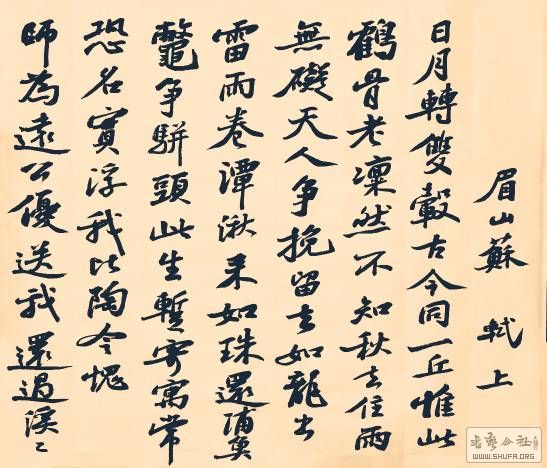 眉山蘇 軾上
日月轉雙轂古今同一丘惟此
鶴骨老凜然不知秋去住兩
無礙天人争挽留去如龍出
雷雨卷潭湫来如珠還浦魚
鼈争駢頭此生暫寄寓常
恐名實浮我比陶令愧
師為遠公優送我還過溪〻
书艺公社
WWW.SHUFA.ORG